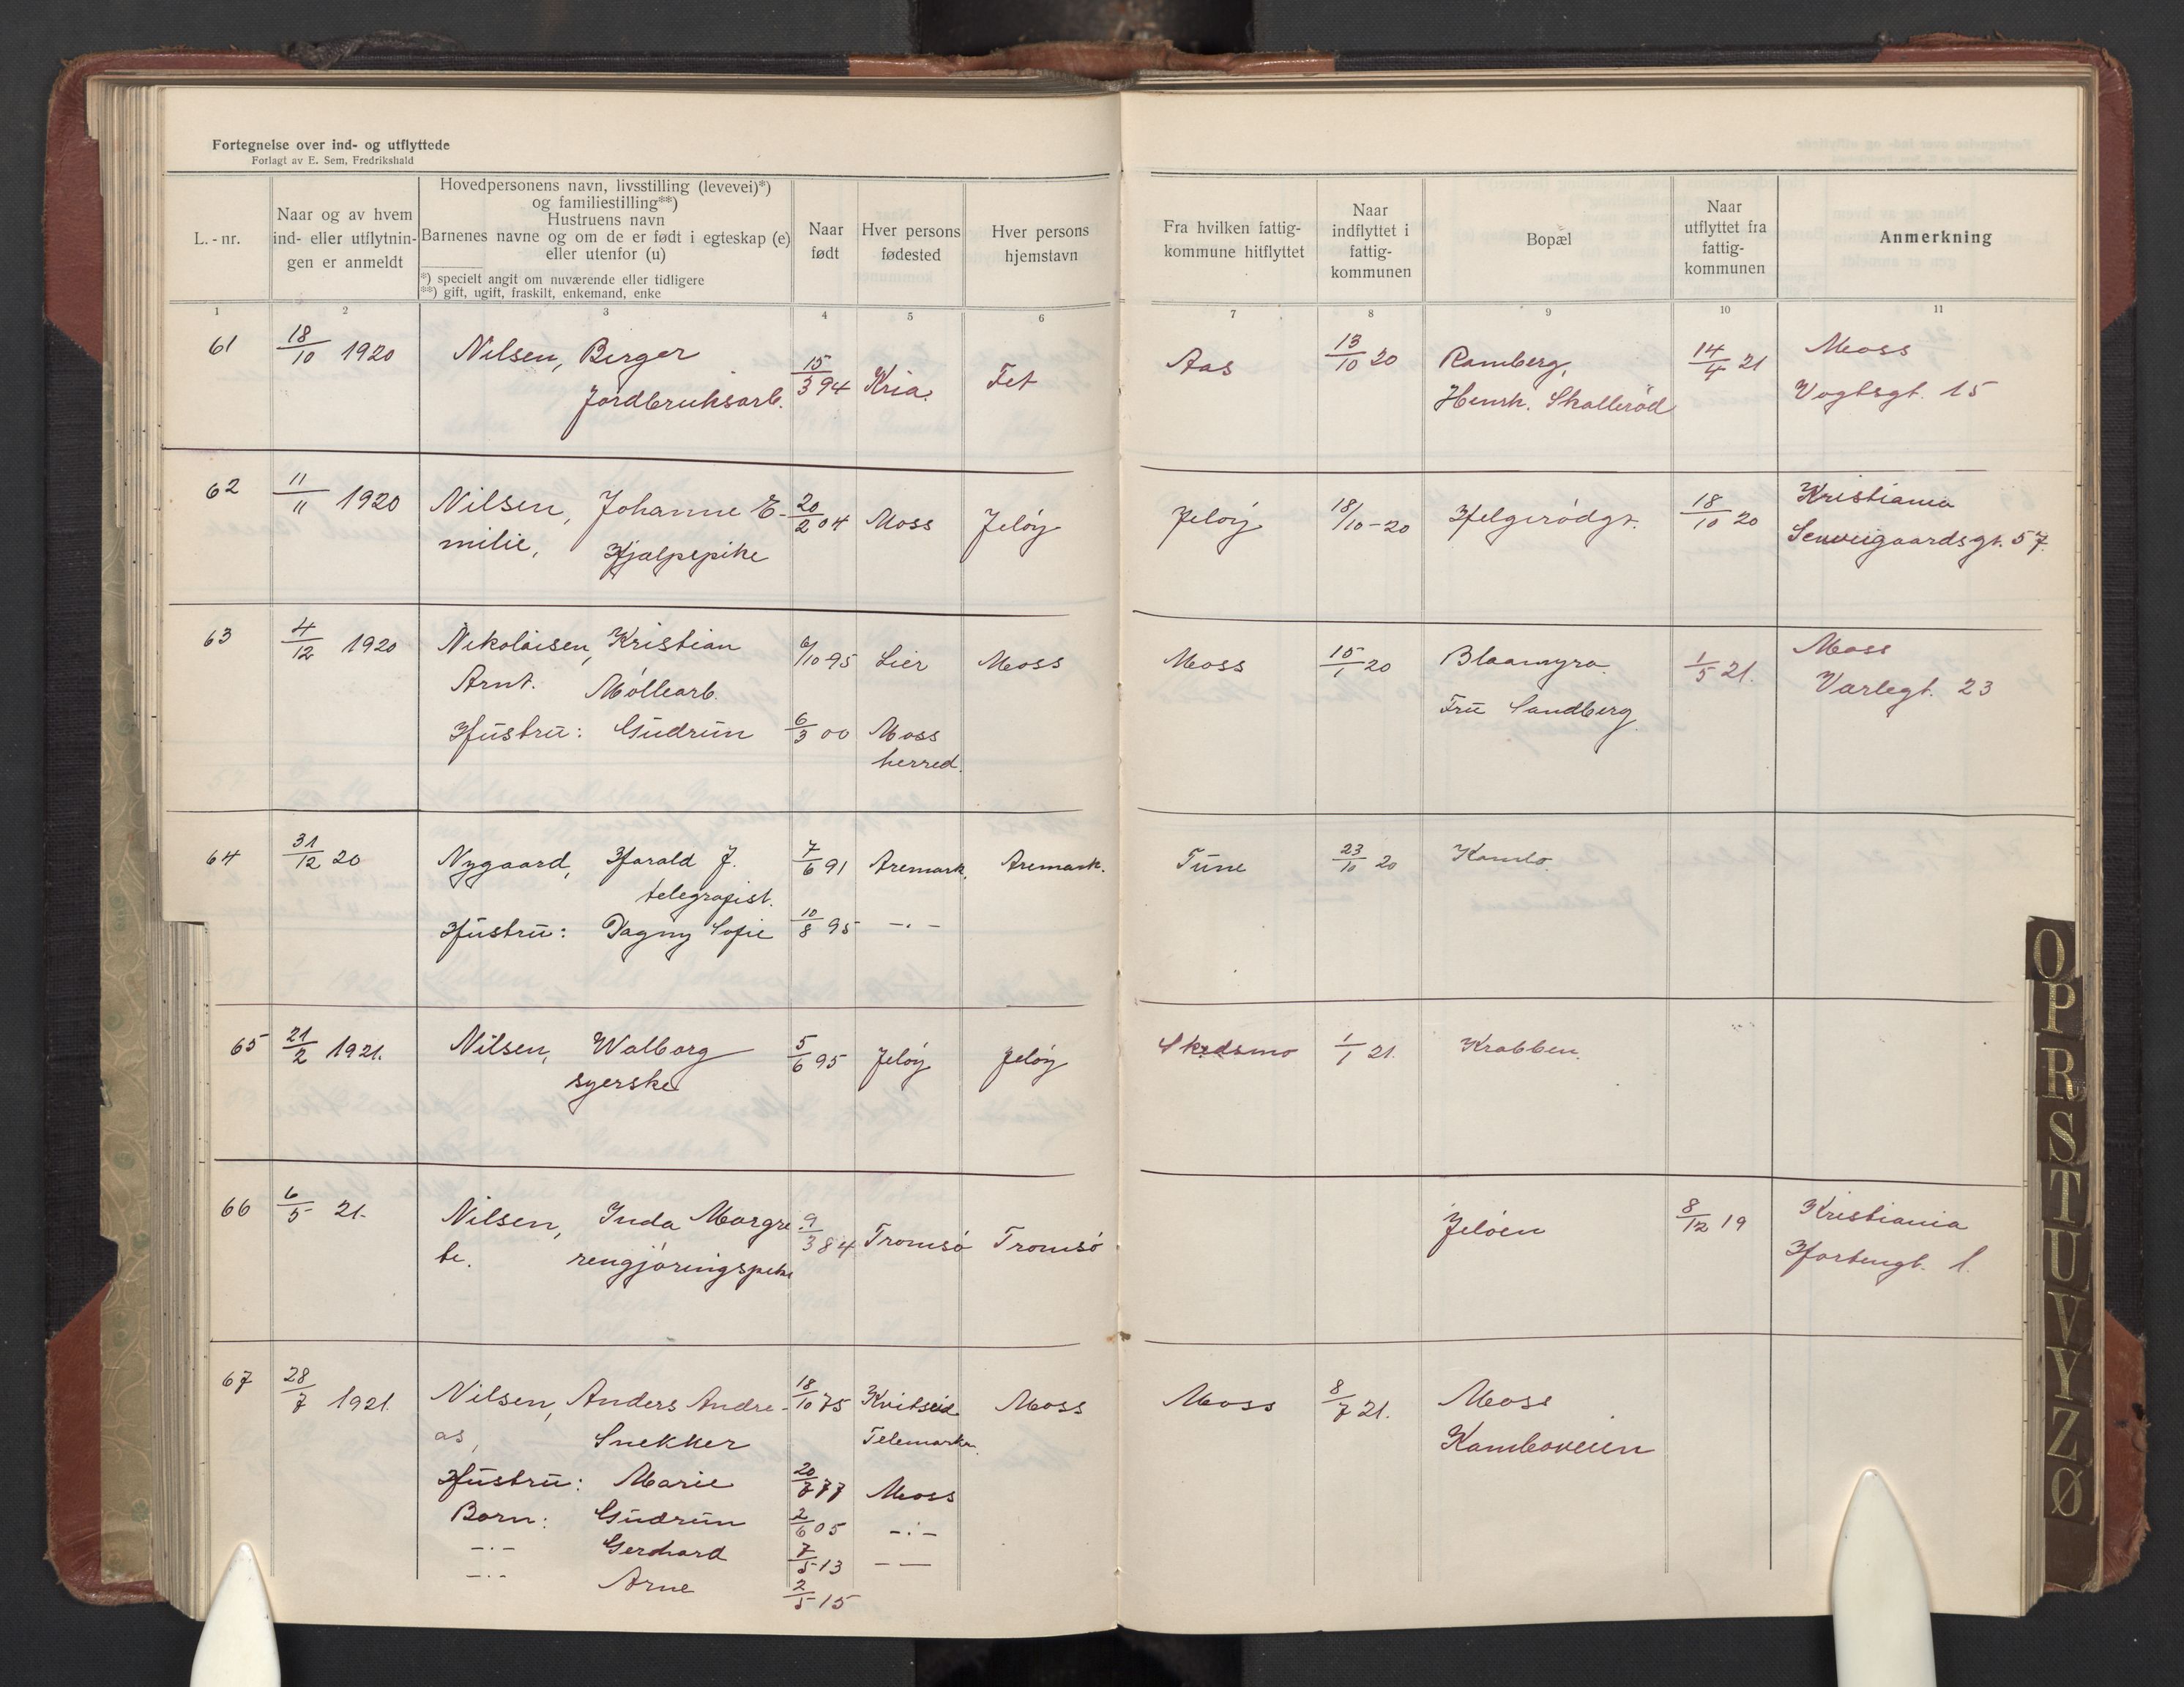 Fortegnelse over ind- og utflyttede
Forlagt av E. Sem, Fredrikshald
L.-nr.
Naar og av hvem ind- eller utflytnin- gen er anmeldt
Hovedpersonens navn, livsstilling (levevei)*)
og familiestilling**)
Hustruens navn
Barnenes navne og om de er født i egteskap (e)
eller utenfor (u)
*) specielt angit om nuværende eller tidligere
**) gift, ugift, fraskilt, enkemand, enke
Naar født
Hver persons fødested
Hver persons hjemstavn
Fra hvilken fattig- kommune hitflyttet
Naar indflyttet i fattig- kommunen
Bopæl
Naar utflyttet fra fattig- kommunen
Anmerkning
1 2 3 4 5 6 7 8 9 10 11
61 18/10 1920 Nilsen, Birger 15/3 94 Kria. Fet Aas 13/10 20 Ramberg, 14/4 21 Moss
Jordbruksarb. Henrh. Skallerød Vogtsgt. 15
62 11/11 1920 Nilsen, Johanne E- 20/2 04 Moss Jeløy Jeløy 18/10-20 Helgerødgt. 18/10 20 Kristiania
milie, Hjælpepike 57
63 4/12 1920 Nikolaisen, Kristian 6/10 95 Lier Moss Moss 15/1 20 Blaamyra. 1/5 21. Moss
Arnt. Møllearb. Fru Sandberg. Varlegt. 23
Hustru: Gudrun 6/3 00 Moss
herred.
64 31/12 20 Nygaard, Harald J. 7/6 91 Aremark. Aremark. Tune 23/10 20 Kambo.
telegrafist.
Hustru: Dagny Sofie 10/8 95 -·-
65 21/2 1921. Nilsen, Walborg 5/6 95 Jeløy Jeløy Skedsmo 1/1 21. Krabben.
syerske
66 6/5 21- Nilsen, Inda Margre- 9/3 84 Tromsø Tromsø Jeløen 8/12 19 Kristiania
te. rengjøringspike 1.
67 28/7 1921. Nilsen, Anders Andre- 18/10 75 Kvitseid Moss Moss 8/7 21. Moss
as, Snekker Telemarken. Kamboveien
Hustru: Marie 20/7 77 Moss
Barn: Gudrun 2/6 05 -·-
-·- Gerhard 7/5 13 - —
-·- Arne 2/5 15
O
P
R
S
T
U
V
Y
Z
Ø